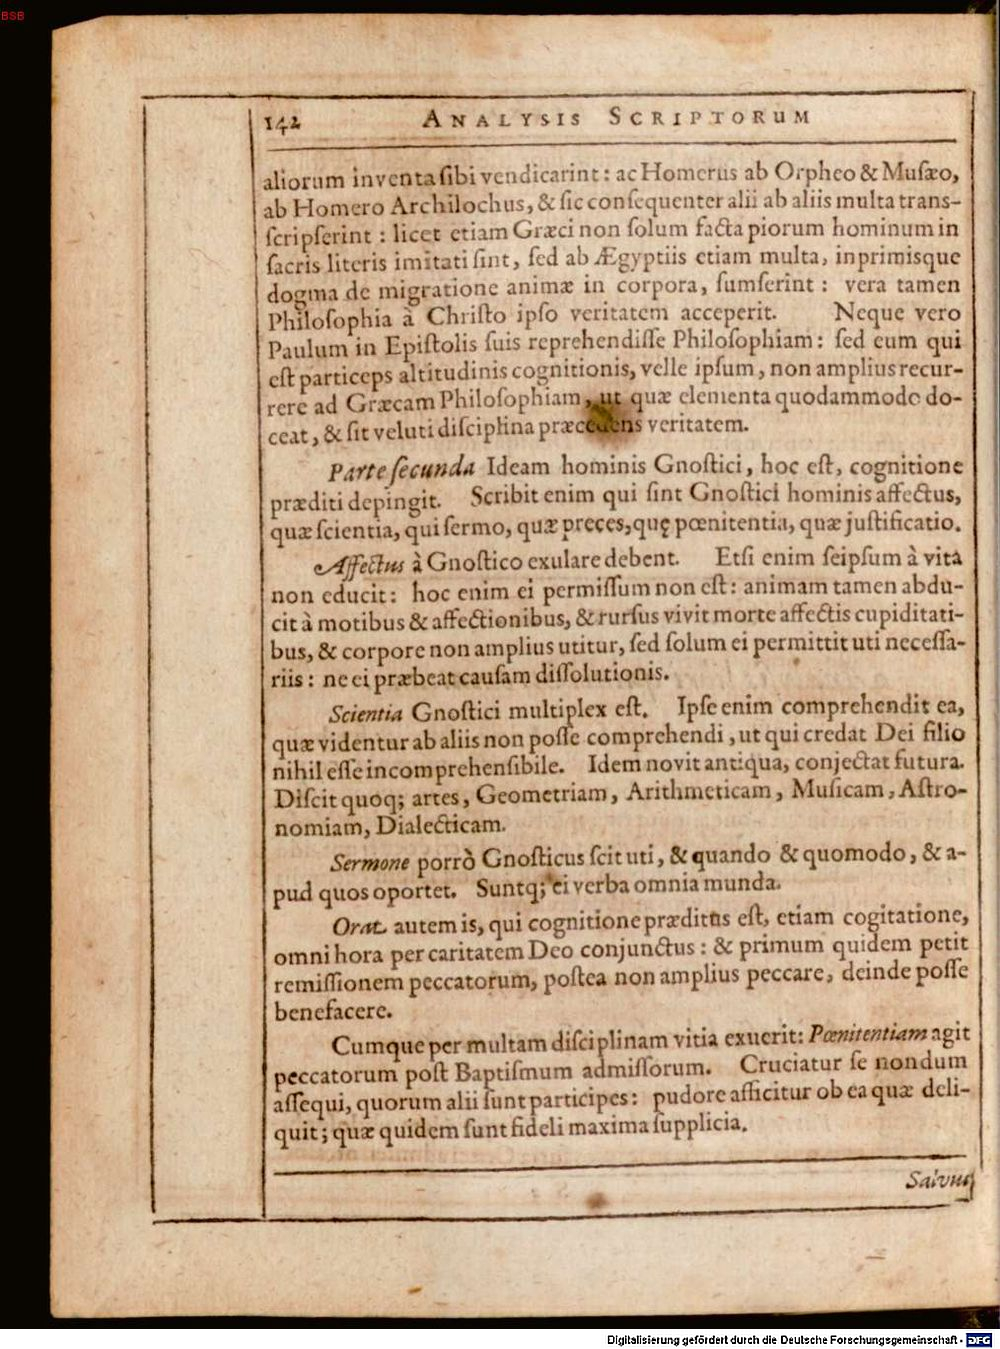 BSB
142 ANALYSIS SCRIPTORUM
aliorum inventa ſibi vendicarint: ac Homerus ab Orpheo & Muſæo,
ab Homero Archilochus, & ſic conſequenter alii ab aliis multa trans-
ſcripſerint : licet etiam Græci non ſolum facta piorum hominum in
ſacris literis imitati ſint, ſed ab Ægyptiis etiam multa, inprimisque
dogma de migratione animæ in corpora, ſumſerint : vera tamen
Philoſophia à Chriſto ipſo veritatem acceperit. Neque vero
Paulum in Epiſtolis ſuis reprehendiſſe Philoſophiam: ſed eum qui
eſt particeps altitudinis cognitionis, velle ipſum, non amplius recur-
rere ad Græcam Philoſophiam, ut quæ elementa quodammodo do-
ceat, & ſit veluti diſciplina præcedens veritatem.
Parte ſecunda Ideam hominis Gnoſtici, hoc eſt, cognitione
præditi depingit. Scribit enim qui ſint Gnoſtici hominis affectus,
quæ ſcientia, qui ſermo, quæ preces, quę pœnitentia, quæ juſtificatio.
Affectus à Gnoſtico exulare debent. Etſi enim ſeipſum à vita
non educit: hoc enim ei permiſſum non eſt: animam tamen abdu-
cit à motibus & affectionibus, & rurſus vivit morte affectis cupiditati-
bus, & corpore non amplius utitur, ſed ſolum ei permittit uti neceſſa-
riis: ne ei præbeat cauſam diſſolutionis.
Scientia Gnoſtici multiplex eſt. Ipſe enim comprehendit ea,
quæ videntur ab aliis non poſſe comprehendi, ut qui credat Dei filio
nihil eſſe incomprehenſibile. Idem novit antiqua, conjectat futura.
Diſcit quoq; artes, Geometriam, Arithmeticam, Muſicam, Aſtro-
nomiam, Dialecticam.
Sermone porrò Gnoſticus ſcit uti, & quando & quomodo, & a-
pud quos oportet. Suntq; ei verba omnia munda.
Orat autem is, qui cognitione præditus eſt, etiam cogitatione,
omni hora per caritatem Deo conjunctus: & primum quidem petit
remiſſionem peccatorum, poſtea non amplius peccare, deinde poſſe
benefacere.
Cumque per multam diſciplinam vitia exuerit: Pœnitentiam agit
peccatorum poſt Baptiſmum admiſſorum. Cruciatur ſe nondum
aſſequi, quorum alii ſunt participes: pudore afficitur ob ea quæ deli-
quit; quæ quidem ſunt fideli maxima ſupplicia.
Salvus
Digitalisierung gefördert durch die Deutsche Forschungsgemeinschaft - DFG